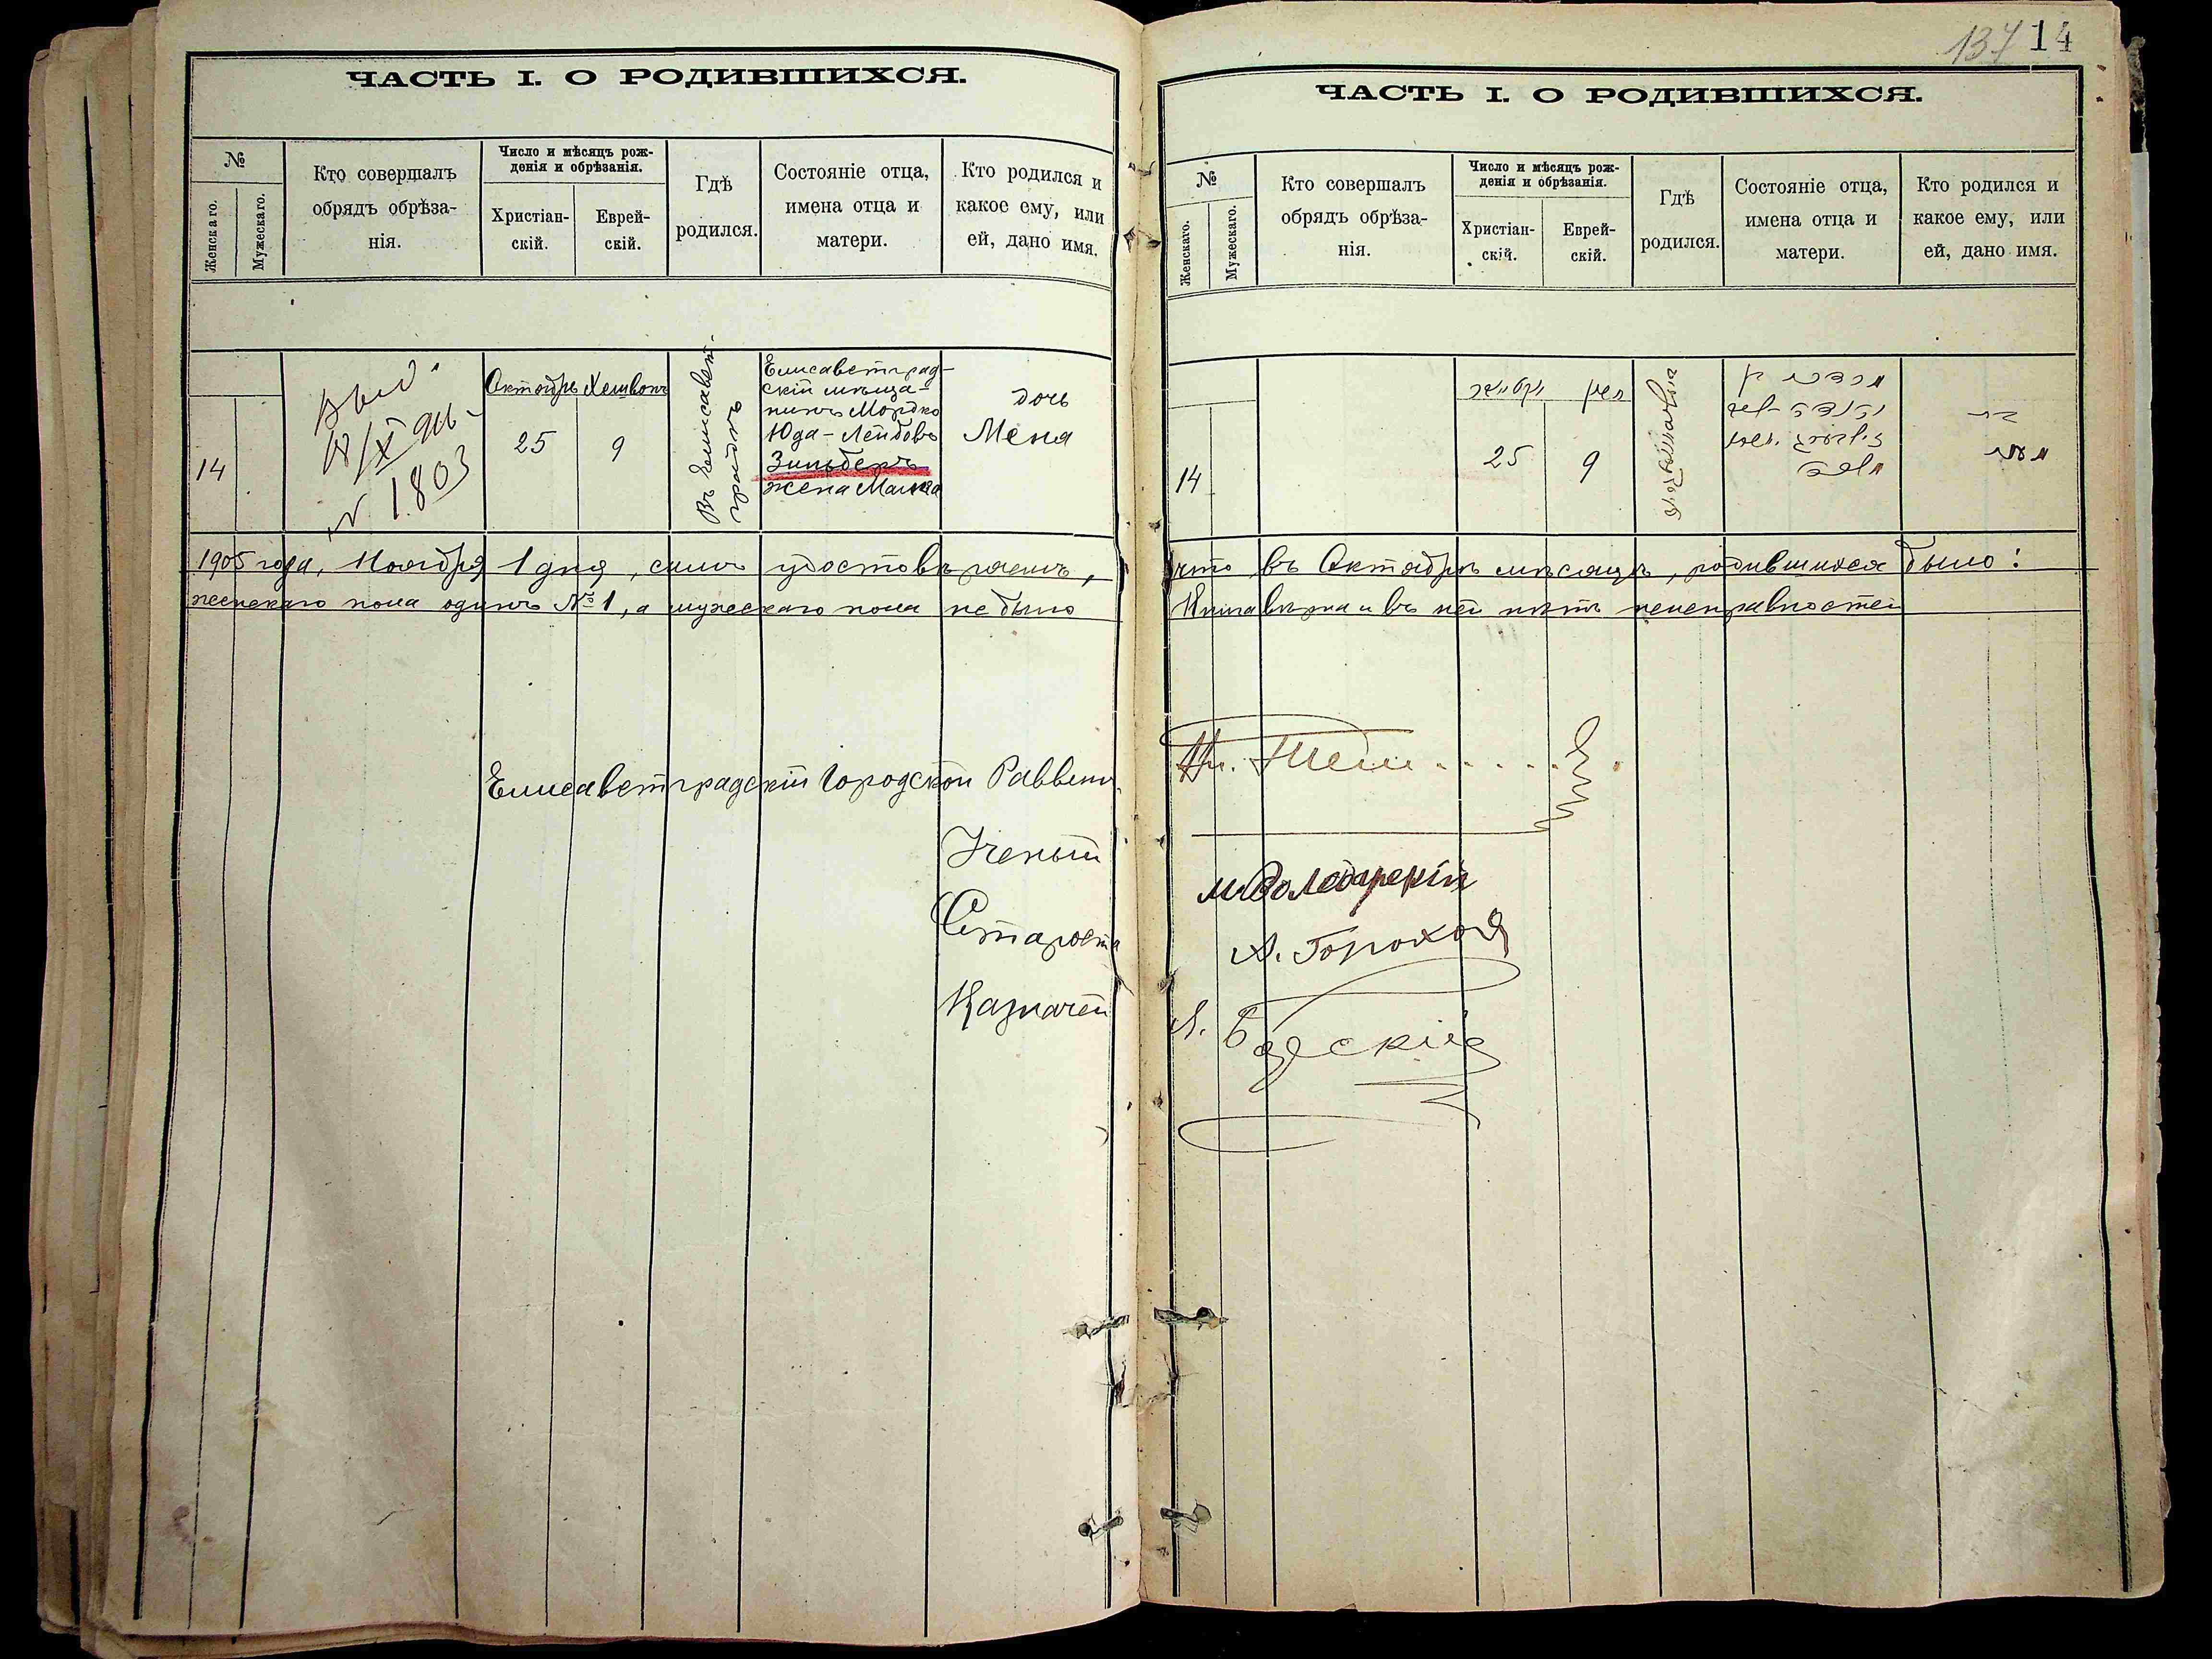 ЧАСТЬ I. О РОДИВШИХСЯ.
№
Женскаго.
Мужескаго.
Кто совершалъ
обрядъ обрѣза-
нія.
Число и мѣсяцъ рож-
денія и обрѣзанія.
Христіан-
скій.
Еврей-
скій.
Гдѣ
родился.
Состояніе отца,
имена отца и
матери.
Кто родился и
какое ему, или
ей, дано имя.
14
Выд.
№ 1803
Октябрь
25
Хешвонъ
9
Въ Елисавет-
градѣ
Елисаветград-
скій мѣща-
нинъ Мордко
Юда-Лейбовъ
Зильберъ
жена Малка
дочь
Меня
1905 года, Ноября 1 дня, симъ удостовѣряемъ,
женскаго пола одинъ № 1, а мужескаго пола не было
Елисаветградскій Городской Раввинъ
Ученый
Староста
Казначей
137 14
ЧАСТЬ I. О РОДИВШИХСЯ.
№
Женскаго.
Мужескаго.
Кто совершалъ
обрядъ обрѣза-
нія.
Число и мѣсяцъ рож-
денія и обрѣзанія.
Христіан-
скій.
Еврей-
скій.
Гдѣ
родился.
Состояніе отца,
имена отца и
матери.
Кто родился и
какое ему, или
ей, дано имя.
14
25
9
что въ Октябрѣ мѣсяцѣ, родившихся было:
Книга вѣрна и въ ней нѣтъ неисправностей
М. Володарскій